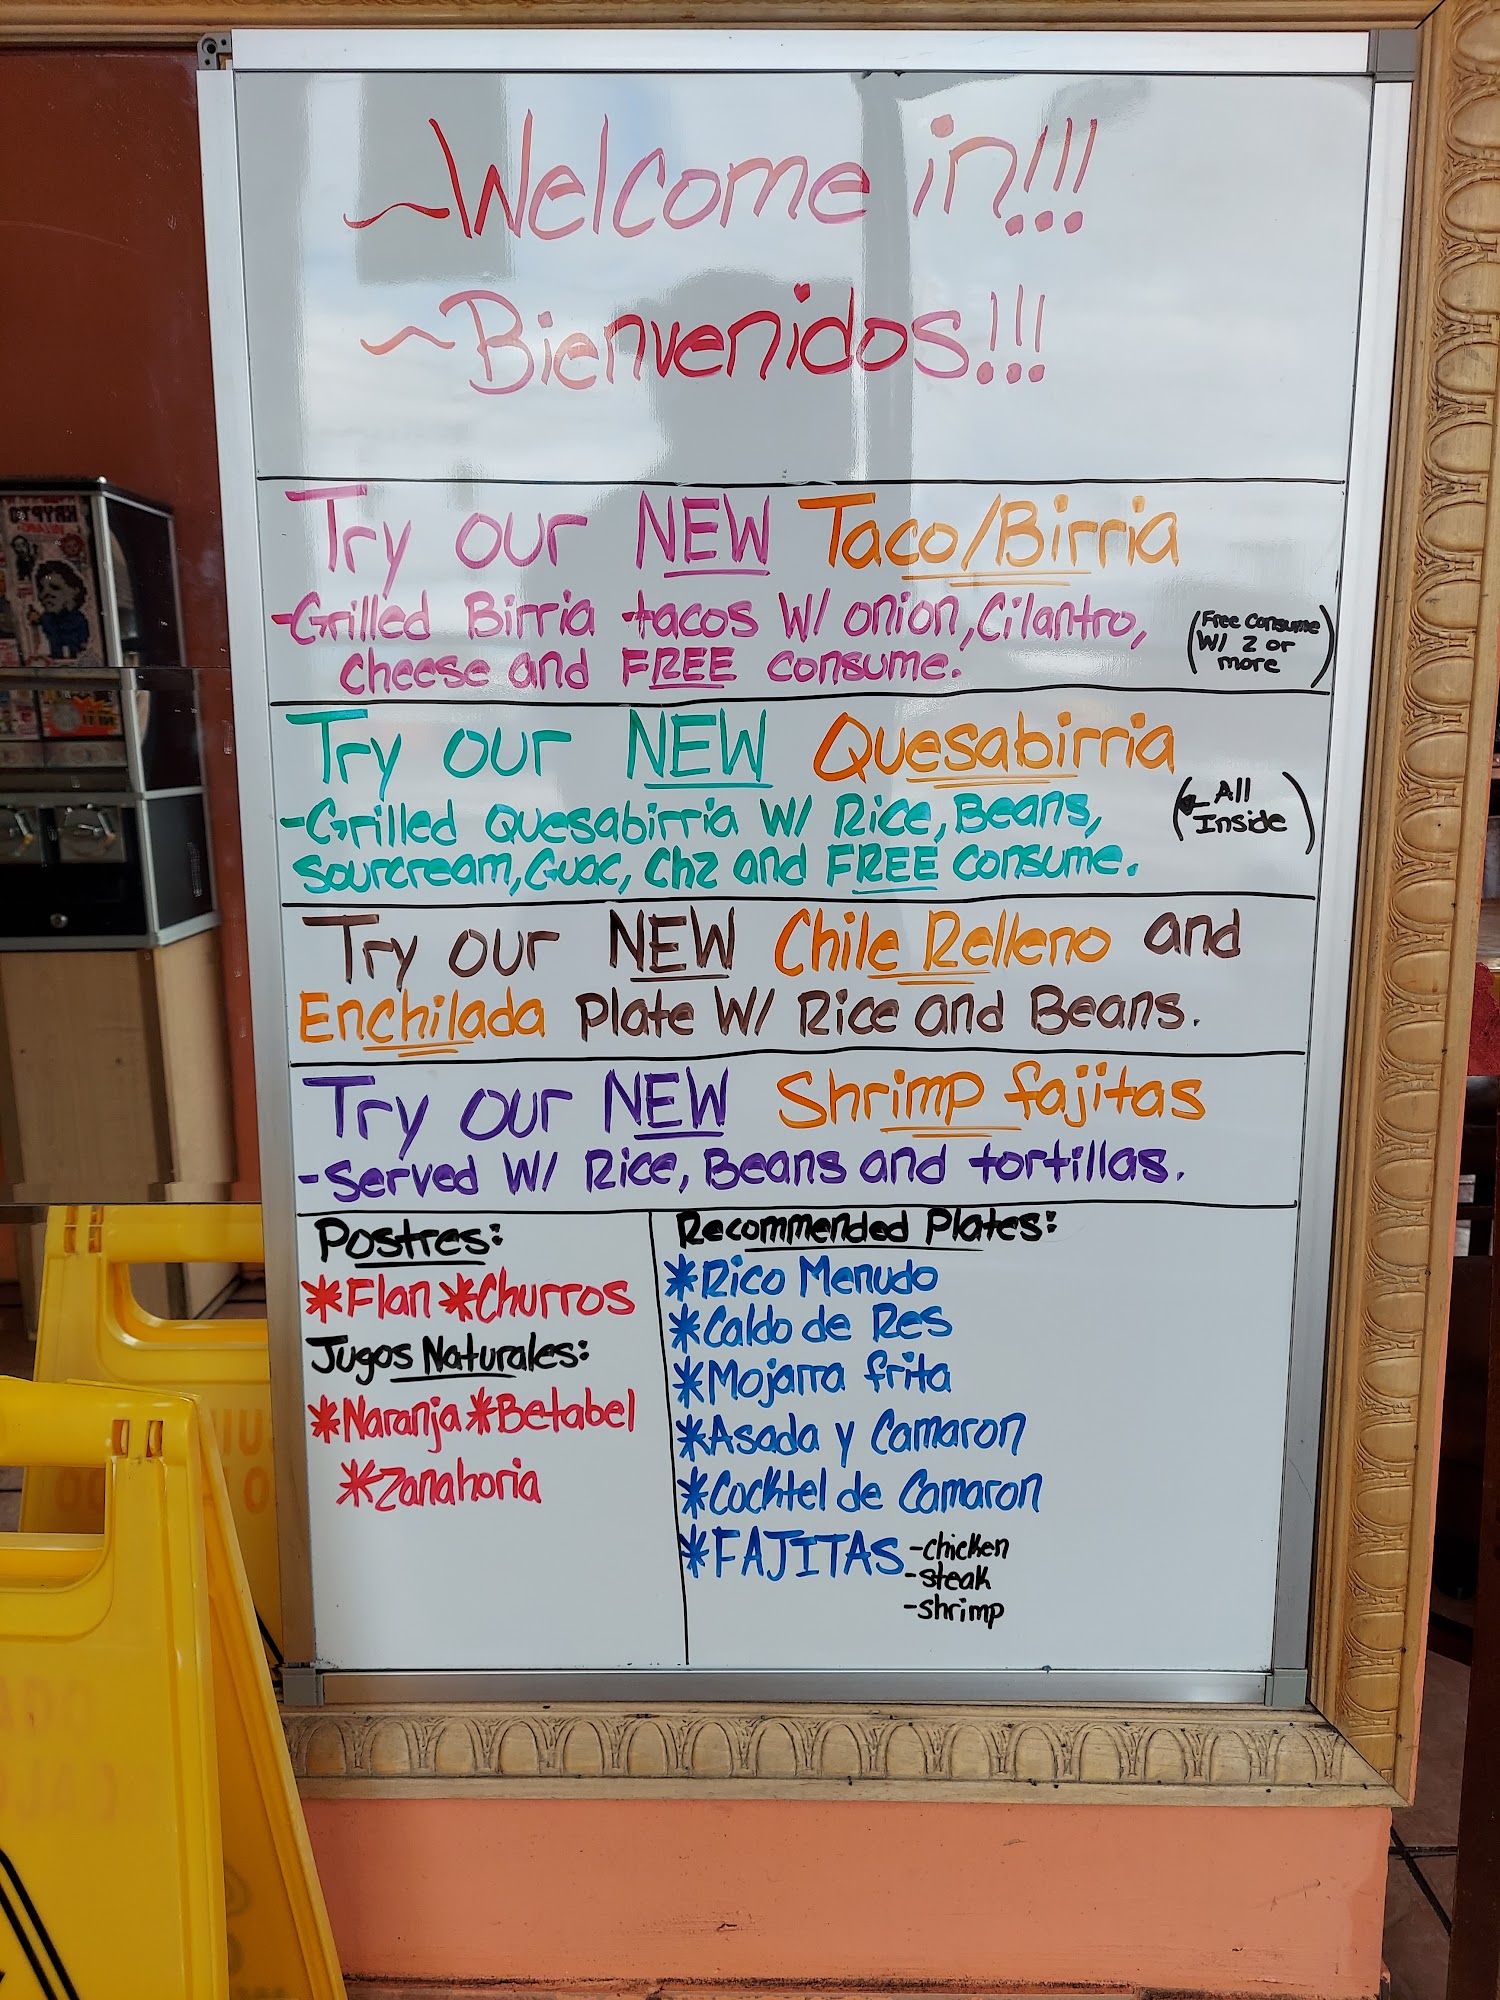 ~Welcome in!!!
~Bienvenidos!!!
Try our NEW Taco/Birria
-Grilled Birria tacos W/ onion, Cilantro,
cheese and FREE consume.
(Free consume
W/ 2 or
more)
Try our NEW Quesabirria
-Grilled Quesabirria W/ Rice, Beans,
sourcream, Guac, Chz and FREE consume.
(All
Inside)
Try our NEW Chile Relleno and
Enchilada Plate W/ Rice and Beans.
Try our NEW Shrimp fajitas
-Served W/ Rice, Beans and tortillas.
Postres:
*Flan *Churros
Jugos Naturales:
*Naranja *Betabel
*Zanahoria
Recommended Plates:
*Rico Menudo
*Caldo de Res
*Mojarra frita
*Asada y Camaron
*Cocktel de Camaron
*FAJITAS -chicken
-steak
-shrimp